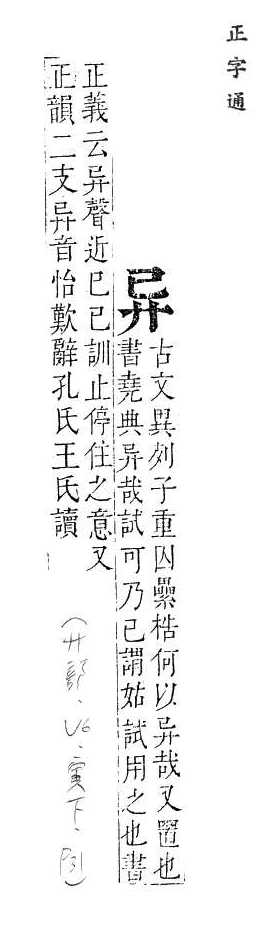 正字通
异
古文異列子重囚纍梏何以异哉又置也
書堯典异哉試可乃已謂姑試用之也書
正義云异聲近已已訓止停住之意又
正韻二支异音怡歎辭孔氏王氏讀
(廾部、V6、寅下、